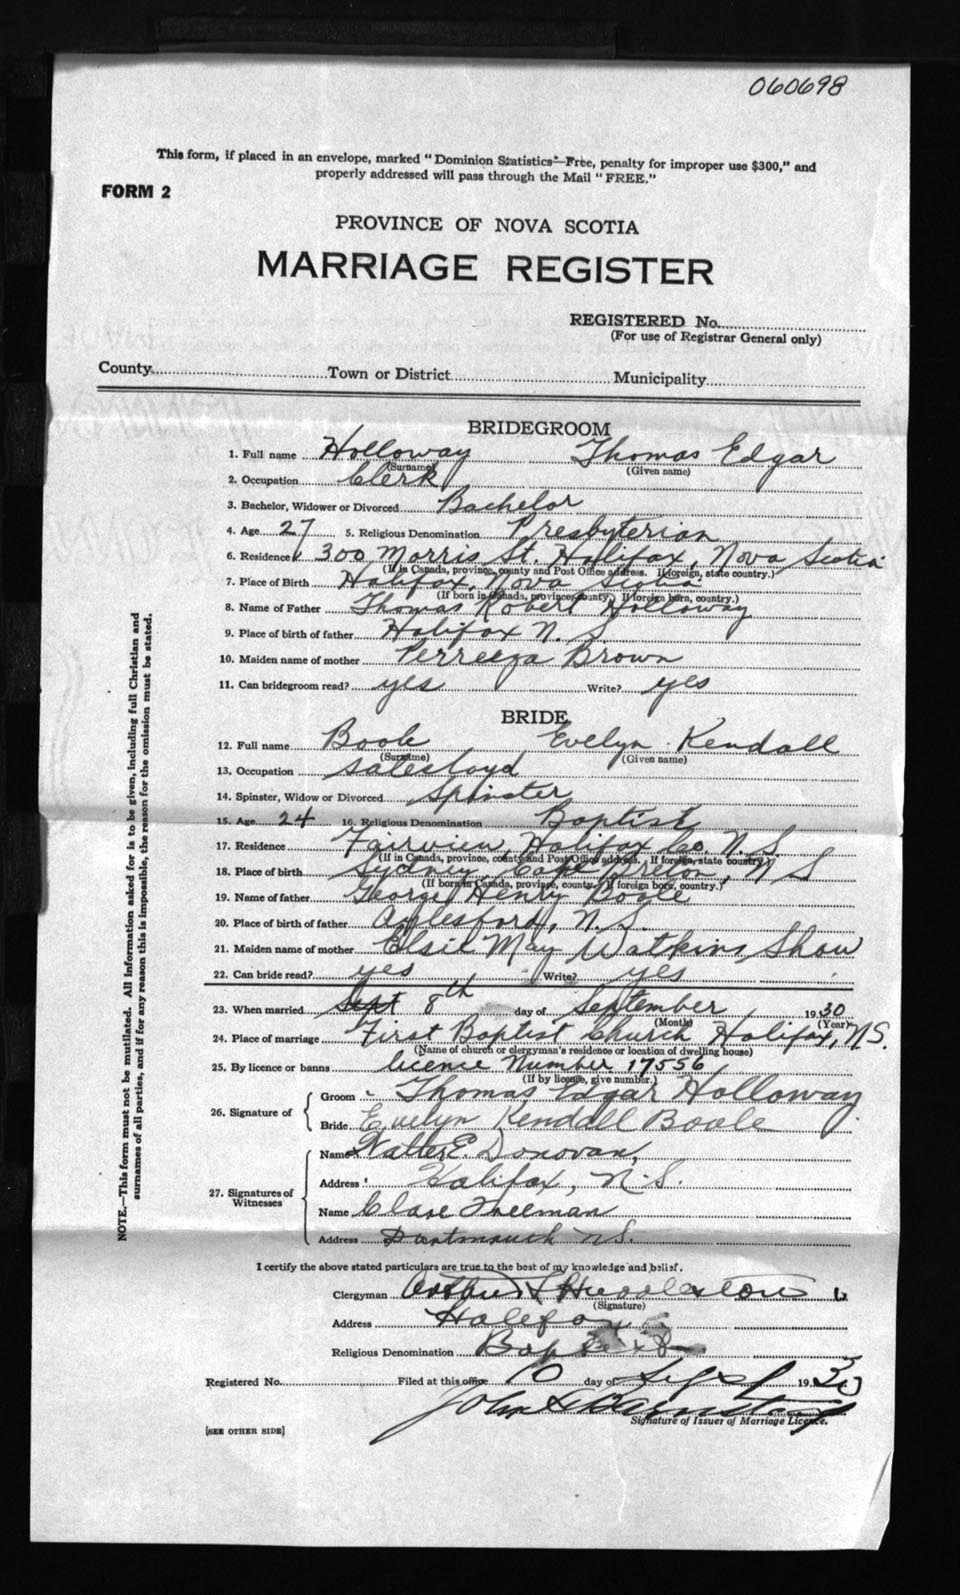 060698
This form, if placed in an envelope, marked "Dominion Statistics—Free, penalty for improper use $300," and
properly addressed will pass through the Mail "FREE."
FORM 2
PROVINCE OF NOVA SCOTIA
MARRIAGE REGISTER
REGISTERED No.
(For use of Registrar General only)
County Town or District Municipality
BRIDEGROOM
1. Full name Holloway Thomas Edgar
(Surname) (Given name)
2. Occupation Clerk
3. Bachelor, Widower or Divorced Bachelor
4. Age 27 5. Religious Denomination Presbyterian
6. Residence 300 Morris St. Halifax, Nova Scotia
(If in Canada, province, county and Post Office address. If foreign, state country.)
7. Place of Birth Halifax, Nova Scotia
(If born in Canada, province, county. If foreign born, country.)
8. Name of Father Thomas Robert Holloway
9. Place of birth of father Halifax N. S.
10. Maiden name of mother Brown
11. Can bridegroom read? yes Write? yes
BRIDE
12. Full name Boole Evelyn Kendall
(Surname) (Given name)
13. Occupation
14. Spinster, Widow or Divorced Spinster
15. Age 24 16. Religious Denomination Baptist
17. Residence Fairview, Halifax Co. N. S.
(If in Canada, province, county and Post Office address. If foreign, state country.)
18. Place of birth Sydney, Cape Breton, N S
(If born in Canada, province, county. If foreign born, country.)
19. Name of father George Henry Boole
20. Place of birth of father Aylesford, N. S.
21. Maiden name of mother Elsie May Watkins Shaw
22. Can bride read? yes Write? yes
23. When married Sept 8th day of September 1930
(Month) (Year)
24. Place of marriage First Baptist Church Halifax, N S.
(Name of church or clergyman's residence or location of dwelling house)
25. By licence or banns licence Number 17556
(If by licence, give number.)
26. Signature of
Groom Thomas Edgar Holloway
Bride Evelyn Kendall Boole
27. Signatures of Witnesses
Name Walter E. Donovan,
Address Halifax, N. S.
Name Freeman
Address Dartmouth N S.
I certify the above stated particulars are true to the best of my knowledge and belief.
Clergyman Arthur
(Signature)
Address Halifax
Religious Denomination Baptist
Registered No. Filed at this office 10 day of Sept 1930
John
Signature of Issuer of Marriage Licence.
[SEE OTHER SIDE]
NOTE.—This form must not be mutilated. All information asked for is to be given, including full Christian and
surnames of all parties, and if for any reason this is impossible, the reason for the omission must be stated.